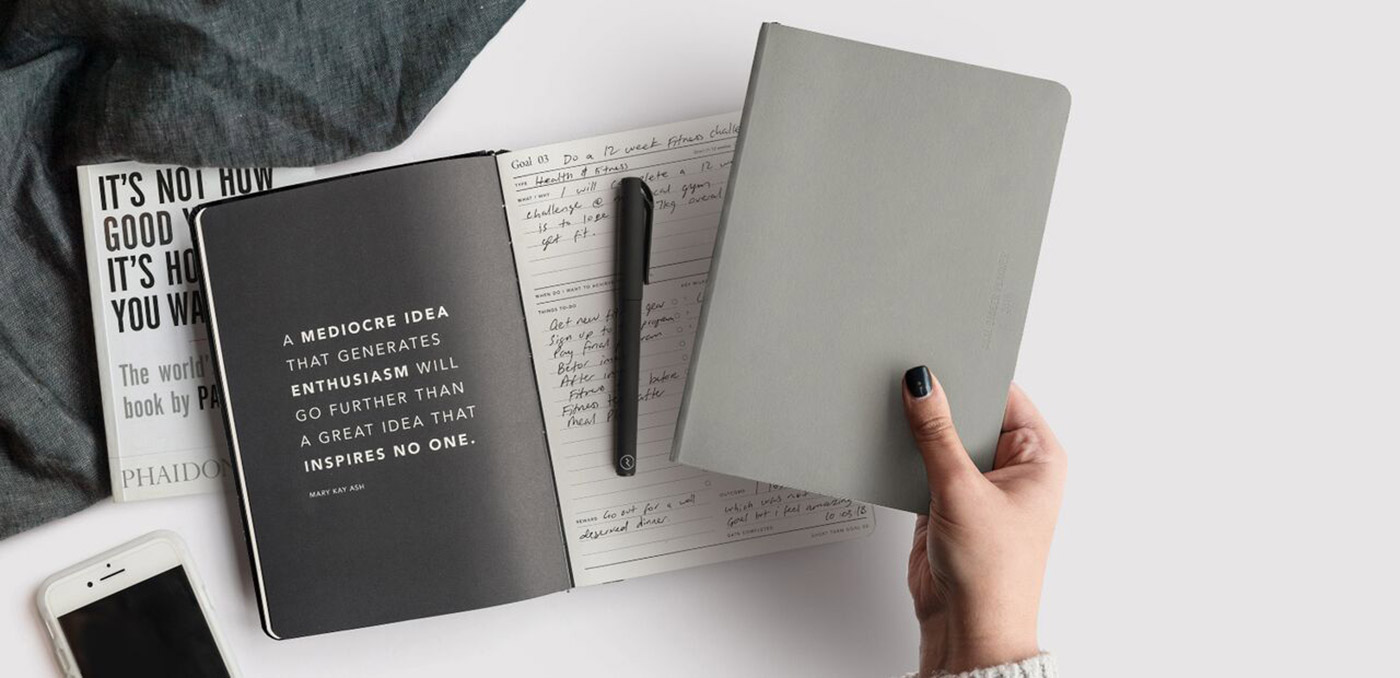 IT'S NOT HOW
GOOD
IT'S HO
YOU WA
The world'
book by PA
PHAIDON
A MEDIOCRE IDEA
THAT GENERATES
ENTHUSIASM WILL
GO FURTHER THAN
A GREAT IDEA THAT
INSPIRES NO ONE.
MARY KAY ASH
Goal 03 Do a 12 week Fitness challe
TYPE Health & Fitness
WHAT / WHY I will a 12
challenge @ gym 7kg overal
is to lose
get fit.
WHEN DO I WANT TO ACHIEVE
THINGS TO-DO
Get new gear
Sign up to
Pay final
Before
After
Fitness before
Fitness after
Meal
REWARD Go out for a well
deserved dinner.
OUTCOME
which was not
Goal but i feel amazing
DATE COMPLETED 10.03.18
SHORT TERM GOAL 03